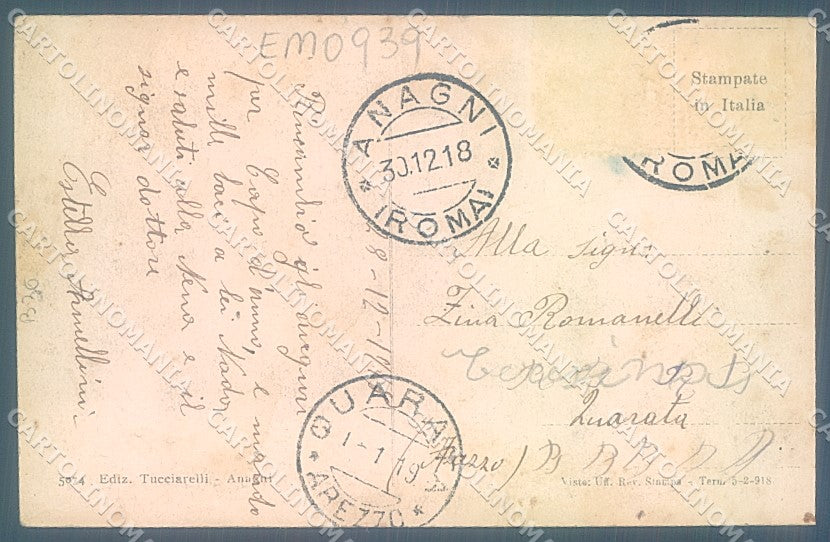 EM0939
Stampate
in Italia
ANAGNI
30.12.18
(ROMA)
ROMA
28-12-18
Ricambio gl'auguri
per Capo d'anno, e mando
mille baci a lei Nado
e saluti alla Nena e il
signor dottore
Armellini
Alla Sign.
Zina Romanelli
Quarata
(Arezzo)
QUARATA
1-1 19
AREZZO
5074 Ediz. Tucciarelli - Anagni
Visto: Uff. Rev. Stampa - Tern. 5-2-918
CARTOLINOMANIA